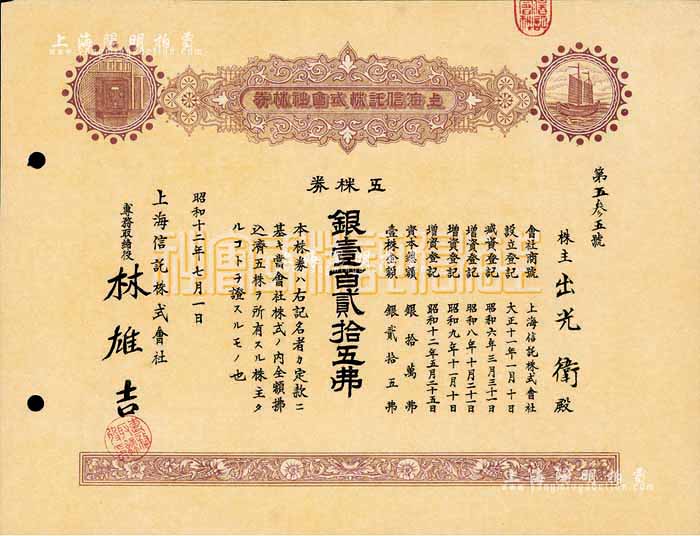 上海陽明拍賣
www.yangmingauction.com
上海信託株式會社株券
五株券
第五参五號
株主 出光衛殿
會社商號 上海信託株式會社
設立登記 大正十一年一月十日
減資登記 昭和六年三月三十一日
增資登記 昭和八年十月二十一日
增資登記 昭和九年十一月十日
增資登記 昭和十二年五月二十五日
資本總額 銀拾萬弗
壹株金額 銀貳拾五弗
銀壹百貳拾五弗
本株券ハ右記名者カ定款ニ
基キ當會社株式ノ内全額拂
込濟五株ヲ所有スル株主タ
ルコトヲ證スルモノ也
昭和十二年七月一日
上海信託株式會社
專務取締役 林雄吉
上海信託株式會社
上海陽明拍賣
www.yangmingauction.com